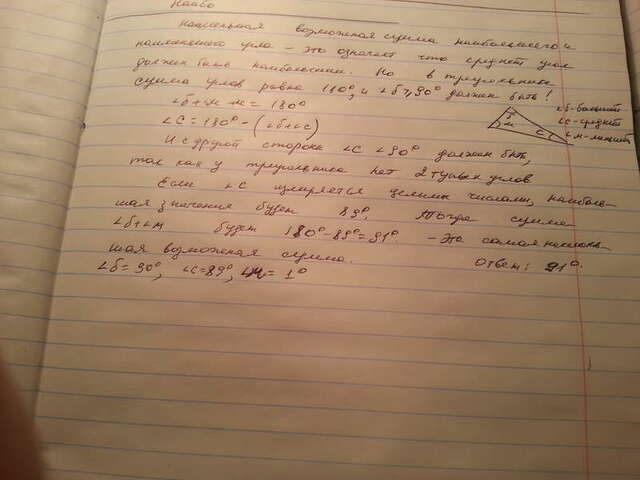 Наибо
Наименьшая возможная сумма наибольшего и
наименьшего угла - это означает что средний угол
должен быть наибольшим. Но в треугольнике
сумма углов равна 180°, и ∠б ≥ 90° должен быть!
∠б + ∠с + ∠м = 180°
∠б - больший
∠с - средний
∠м - меньший
∠С = 180° - (∠б+∠с)
И с другой стороны ∠С ∠90° должен быть,
так как у треугольника нет 2 тупых углов
Если ∠С измеряется целыми числами, наиболь-
шая значения будет 89°. Тогда сумма
∠б+∠м будет 180°-89°=91°. - Это самая наимень-
шая возможная сумма. Ответ: 91°.
∠б=90°, ∠С=89°, ∠м=1°